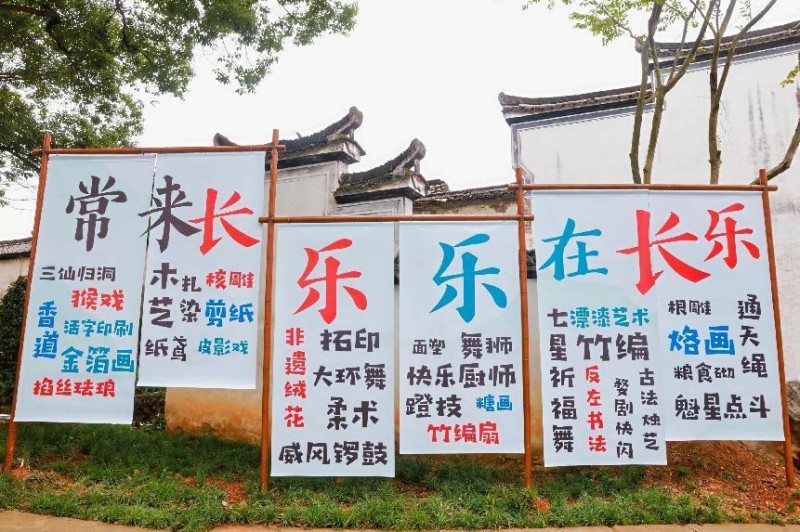 常来长乐 乐在长乐
三仙归洞
猴戏
香道
活字印刷
金箔画
掐丝珐琅
木艺
扎染
核雕
剪纸
纸鸢
皮影戏
非遗绒花
拓印
大环舞
柔术
威风锣鼓
面塑
舞狮
快乐厨师
蹬技
糖画
竹编扇
七星祈福舞
漂漆艺术
竹编
反左书法
婺剧快闪
古法烛艺
根雕
烙画
粮食砌
通天绳
魁星点斗